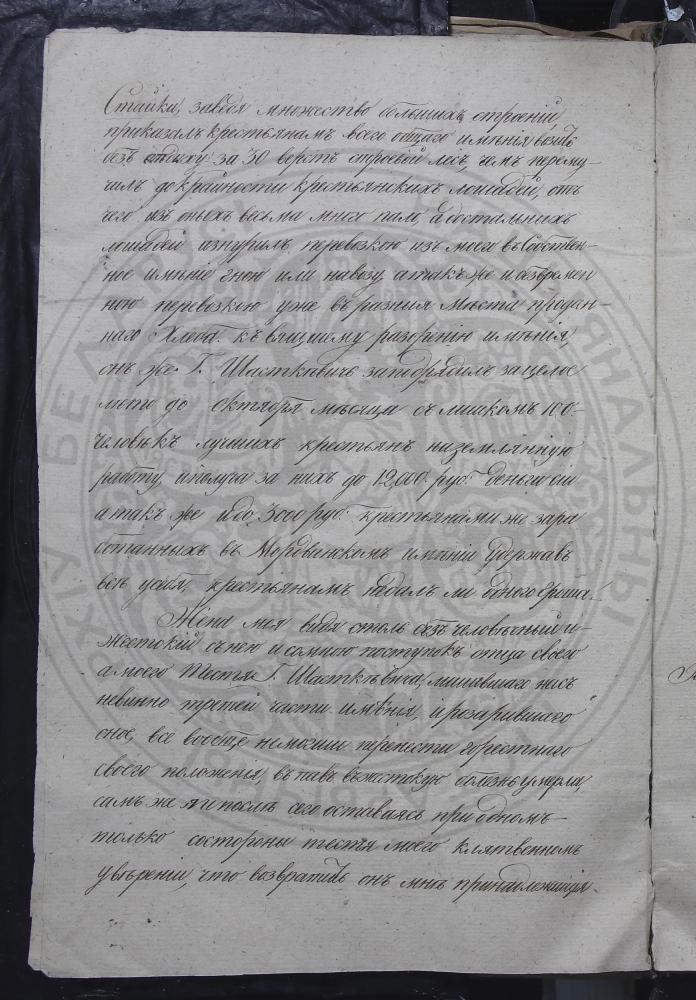 Стайки, заведя множество большихъ строеній,
приказалъ крестьянамъ всего общаго имѣнія возить
безъ отдыху за 30 верстъ строевой лесъ, чемъ перему-
чилъ до крайности крестьянскихъ лошадей, отъ
чего изъ оныхъ весьма много пало, а достальныхъ
лошадей изнурилъ перевозкою изъ моего въ Собствен-
ное имѣніе гною или навозу, атакъ же и безвремен
ною перевозкою уже въ разныя мѣста продан-
наго Хлеба. къ вящшему разоренію имѣнія,
онъ же Г. Шасткевичъ заподрядилъ зацелое
лето до Октября мѣсяца съ лишкомъ 100-
человѣкъ лучшихъ крестьянъ наземлянную
работу, иполуча за нихъ до 12,000. руб. деньги сіи
атакъ же и до 3000 руб. крестьянами же зара
ботанныхъ въ Мордвинскомъ имѣніи удержавъ
всѣ усебя, крестьянамъ недалъ ни одного гроша.
Жена моя видя столь безчеловѣчный и-
жестокій снею исомною поступокъ отца своего
а моего Тестя Г. Шасткѣвича, лишившаго насъ
невинно третей части имѣнія, иразорившаго
оное, все вообще немогши перенести горестнаго
своего положенія, впавъ въжестокую болезнь умерла,
самъ же я ипослѣ сего оставаясь приодномъ-
только состороны тестя моего клятвенномъ
увѣреніи, что возвратитъ онъ мнѣ принадлежащія